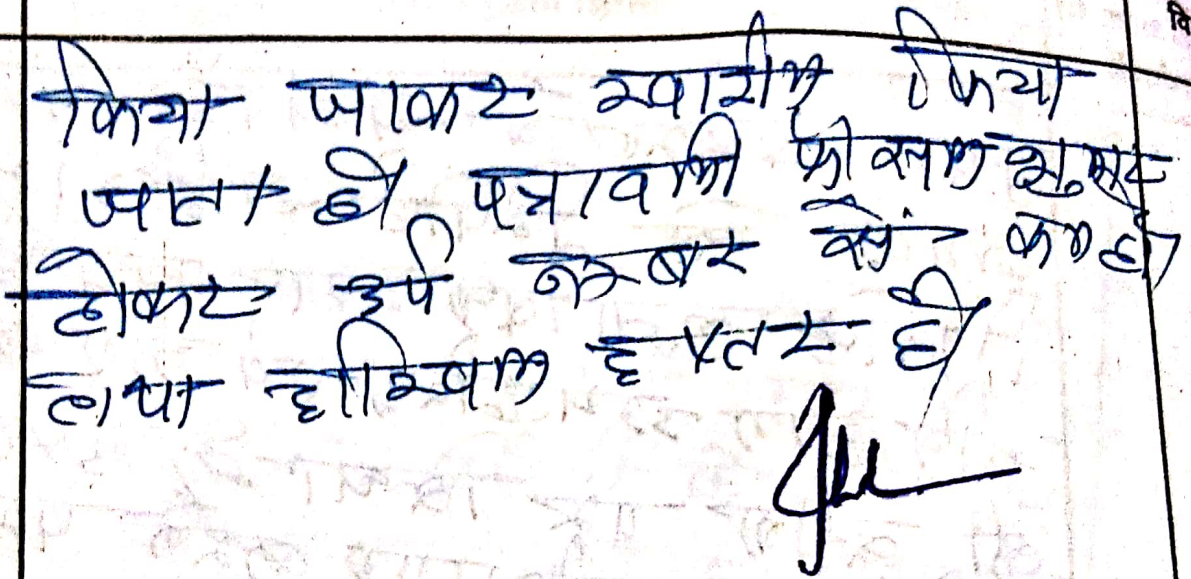 किया जाकर खारीज किया
जाता है पत्रावली फैसल शुमार
होकर दर्ज नम्बर से कम हो
तथा दाखिल दफ्तर हो